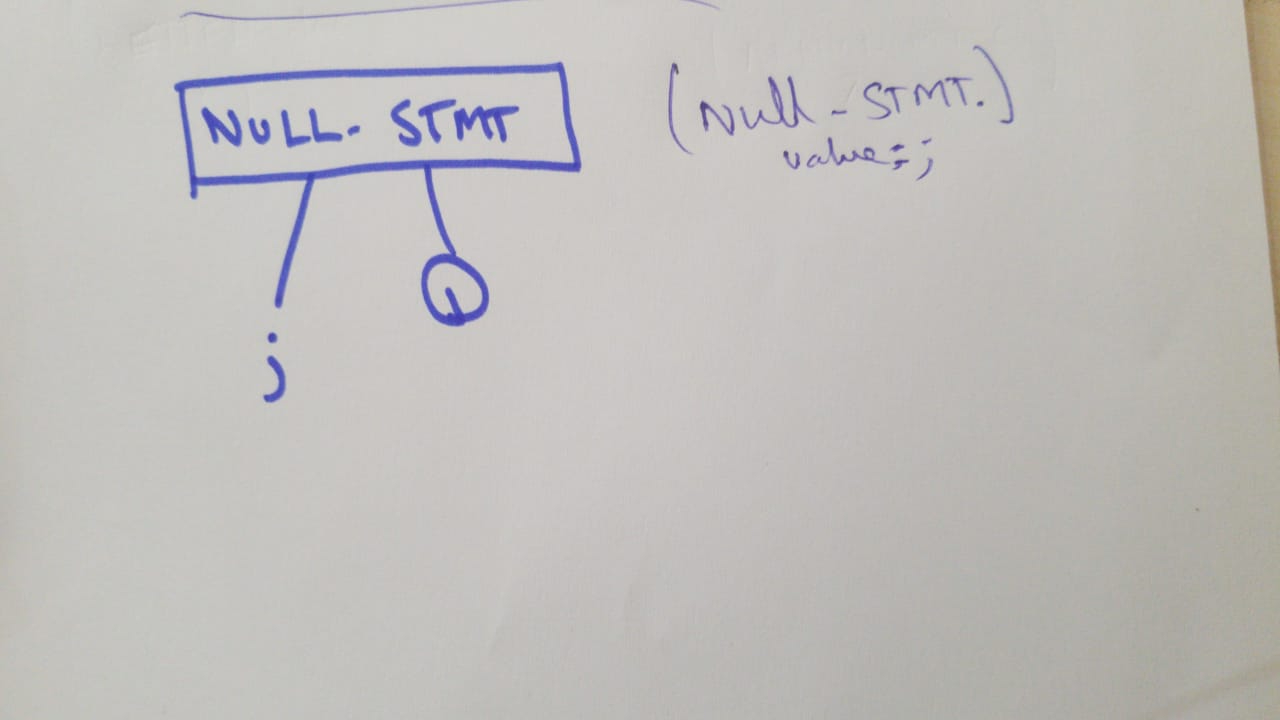 NULL- STMT
(Null - STMT.)
value=;
;